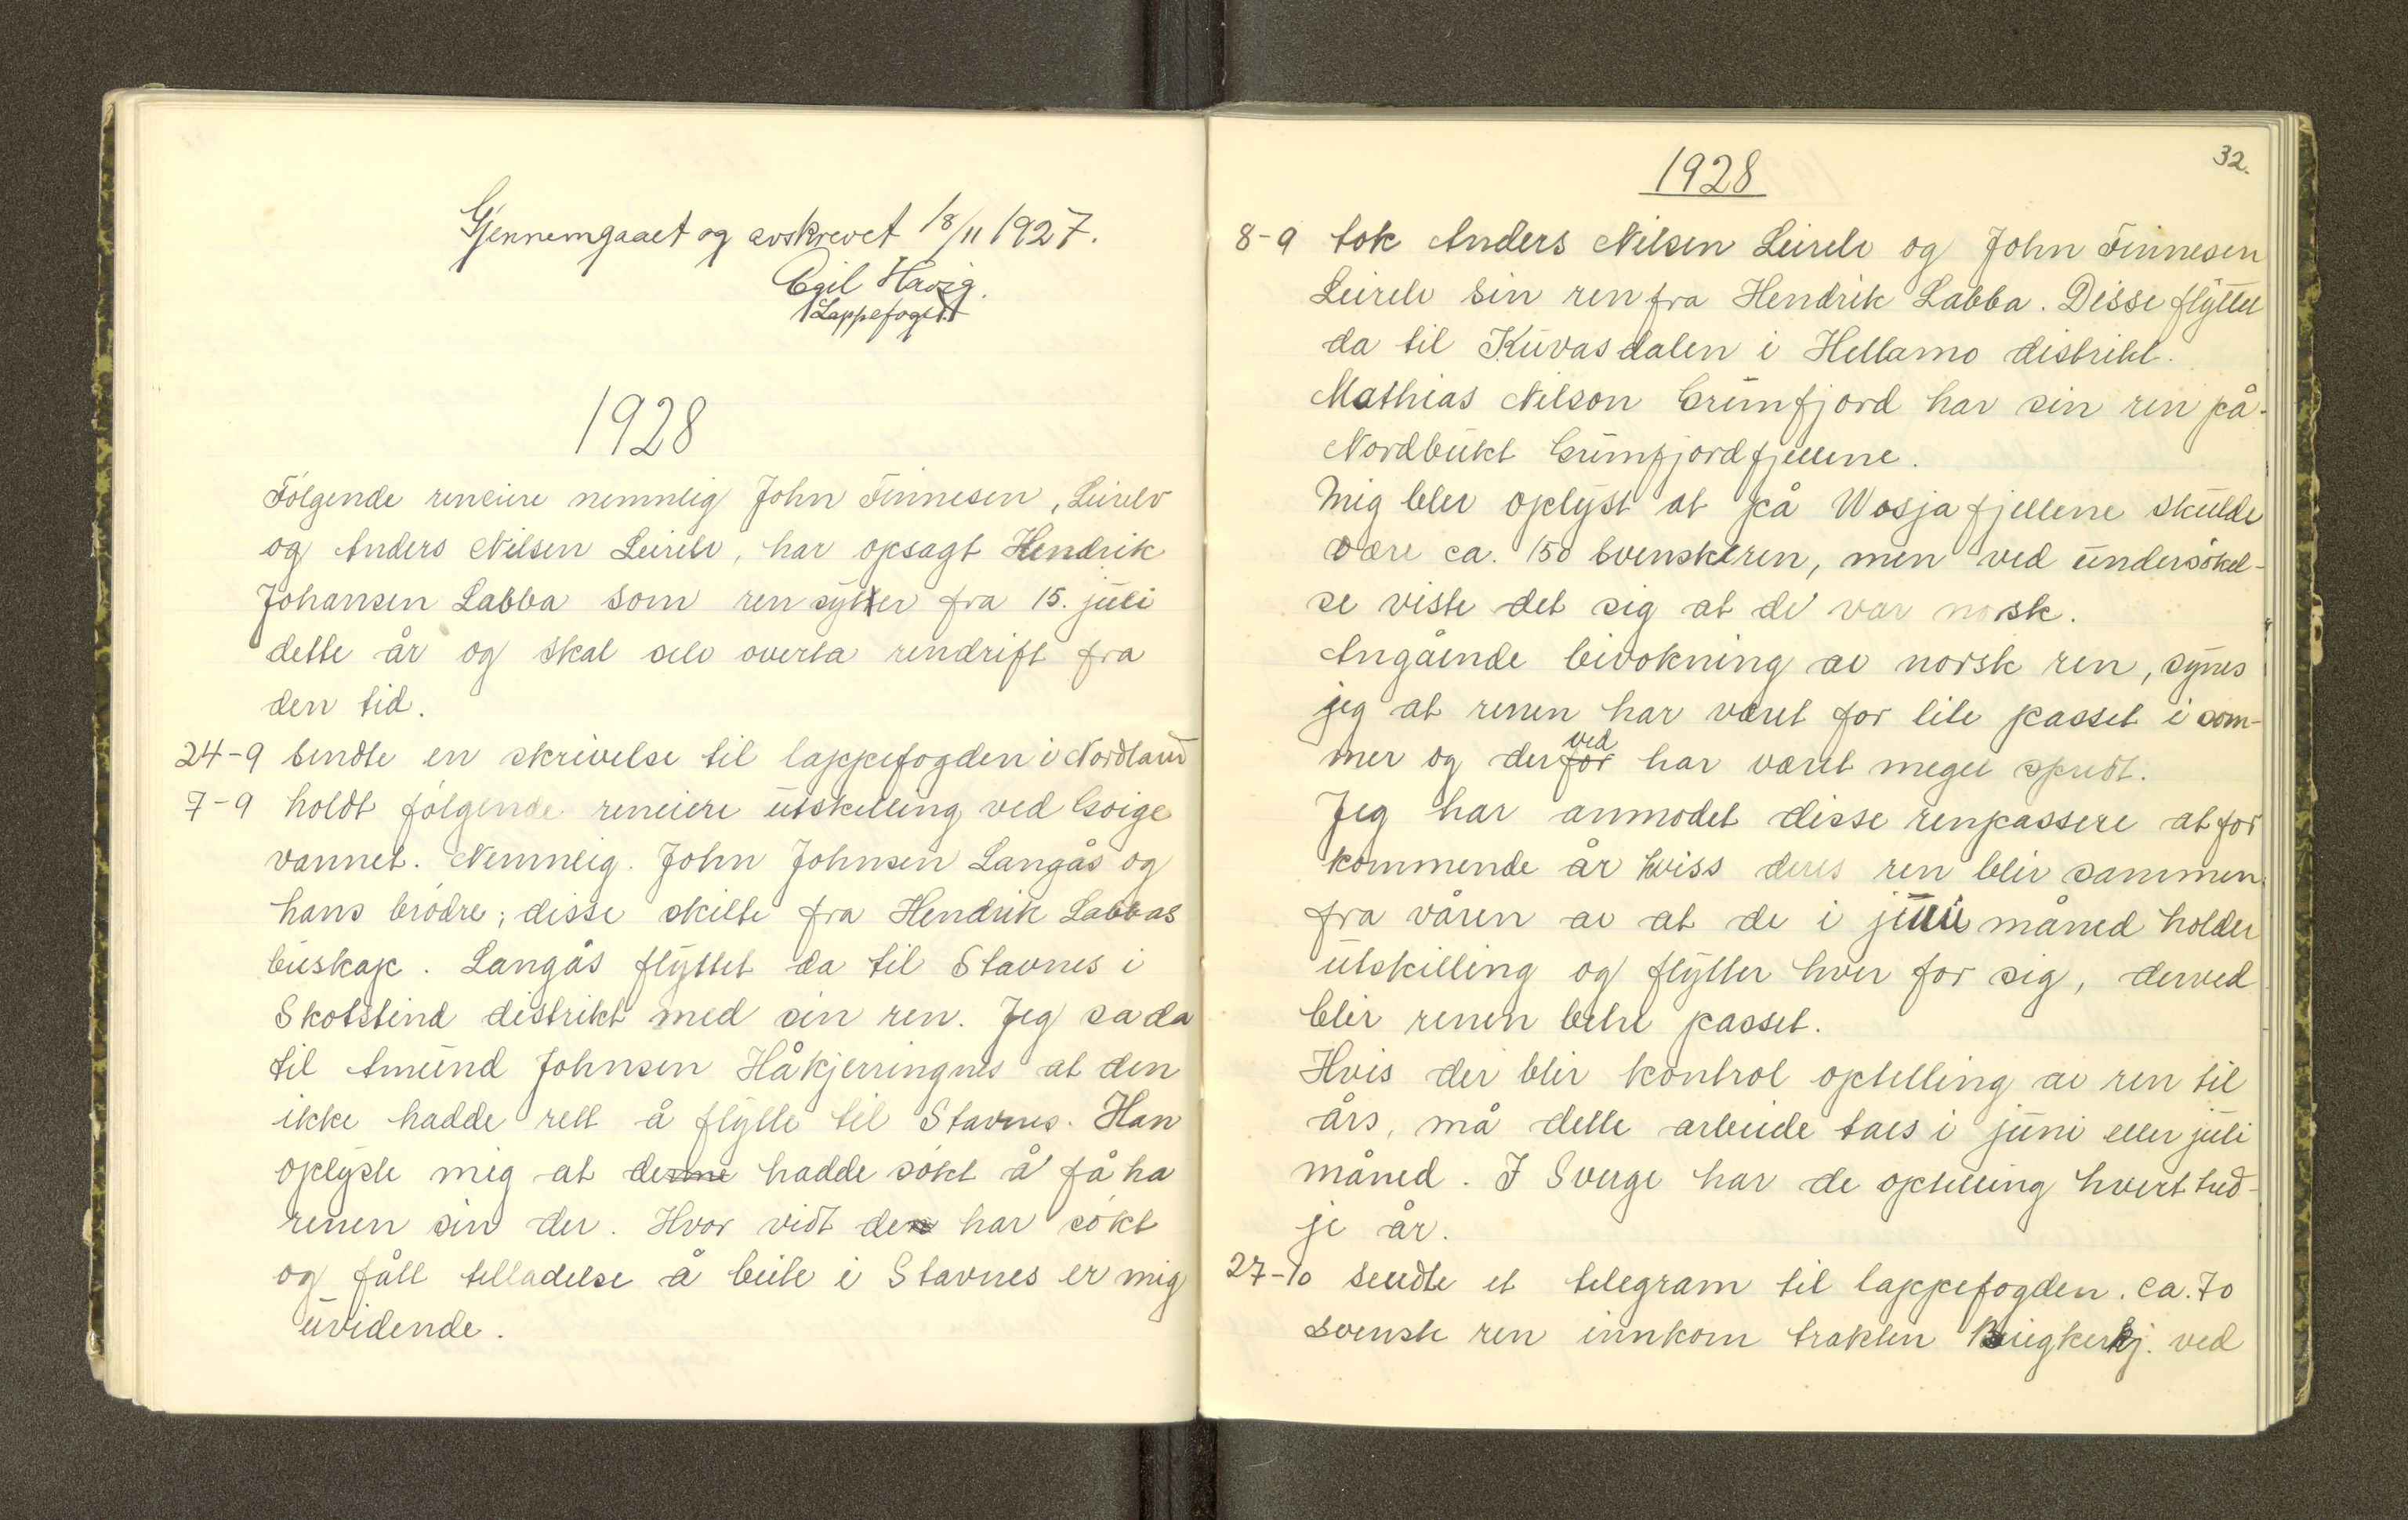 Gjennemgaaet og avskrevet 18/11 1927.
Egil Havig.
Lappefoged
1928
Følgende reneiere nemnlig John Finnesen, Leirelv
og Anders Nilsen Leirelv, har opsagt Hendrik
Johansen Labba som ren sytter fra 15. juli
dette år og skal selv overta rendrift fra
den tid.
24-9 sendte en skrivelse til lappefogden i Nordland
7-9 holdt følgende reneiere utskilling ved Goige
vannet. Nemnlig. John Johnsen Langås og
hans brødre; disse skilte fra Hendrik Labbas
buskap. Langås flyttet da til Stavnes i
Skotstind distrikt med sin ren. Jeg sa da
til Amund Johnsen Håkjerringnes at den
ikke hadde rett å flytte til Stavnes. Han
oplyste mig at denne hadde søkt å få ha
renen sin der. Hvor vidt den har søkt
og fått tilladelse å beite i Stavnes er mig
uvidende.
32.
1928
8-9 tok Anders Nilsen Leirelv og John Finnesen
Leirelv sin ren fra Hendrik Labba. Disse flyttet
da til Kuvasdalen i Hellamo distrikt.
Mathias Nilson Grunfjord har sin ren på
Nordbukt Grunfjordfjellene.
Mig blev oplyst at på Wosja fjellene skulde
være ca. 150 svenskren, men ved undersøkel-
se viste det sig at de var norsk.
Angående bivokning av norsk ren, synes
jeg at renen har været for lite passet i som-
mer og derfor ved har været meget spredt.
Jeg har anmodet disse renpassere at for
kommende år hviss deres ren blir sammen
fra våren av at de i juli måned holder
utskilling og flytter hver for sig, derved
blir renen betre passet.
Hvis der blir kontrol optelling av ren til
års, må dette arbeide taes i juni eller juli
måned. I Sverge har de optelling hvert tred-
je år.
27-10 sendte et telegram til lappefogden. ca. 70
svensk ren innkom trakten ved